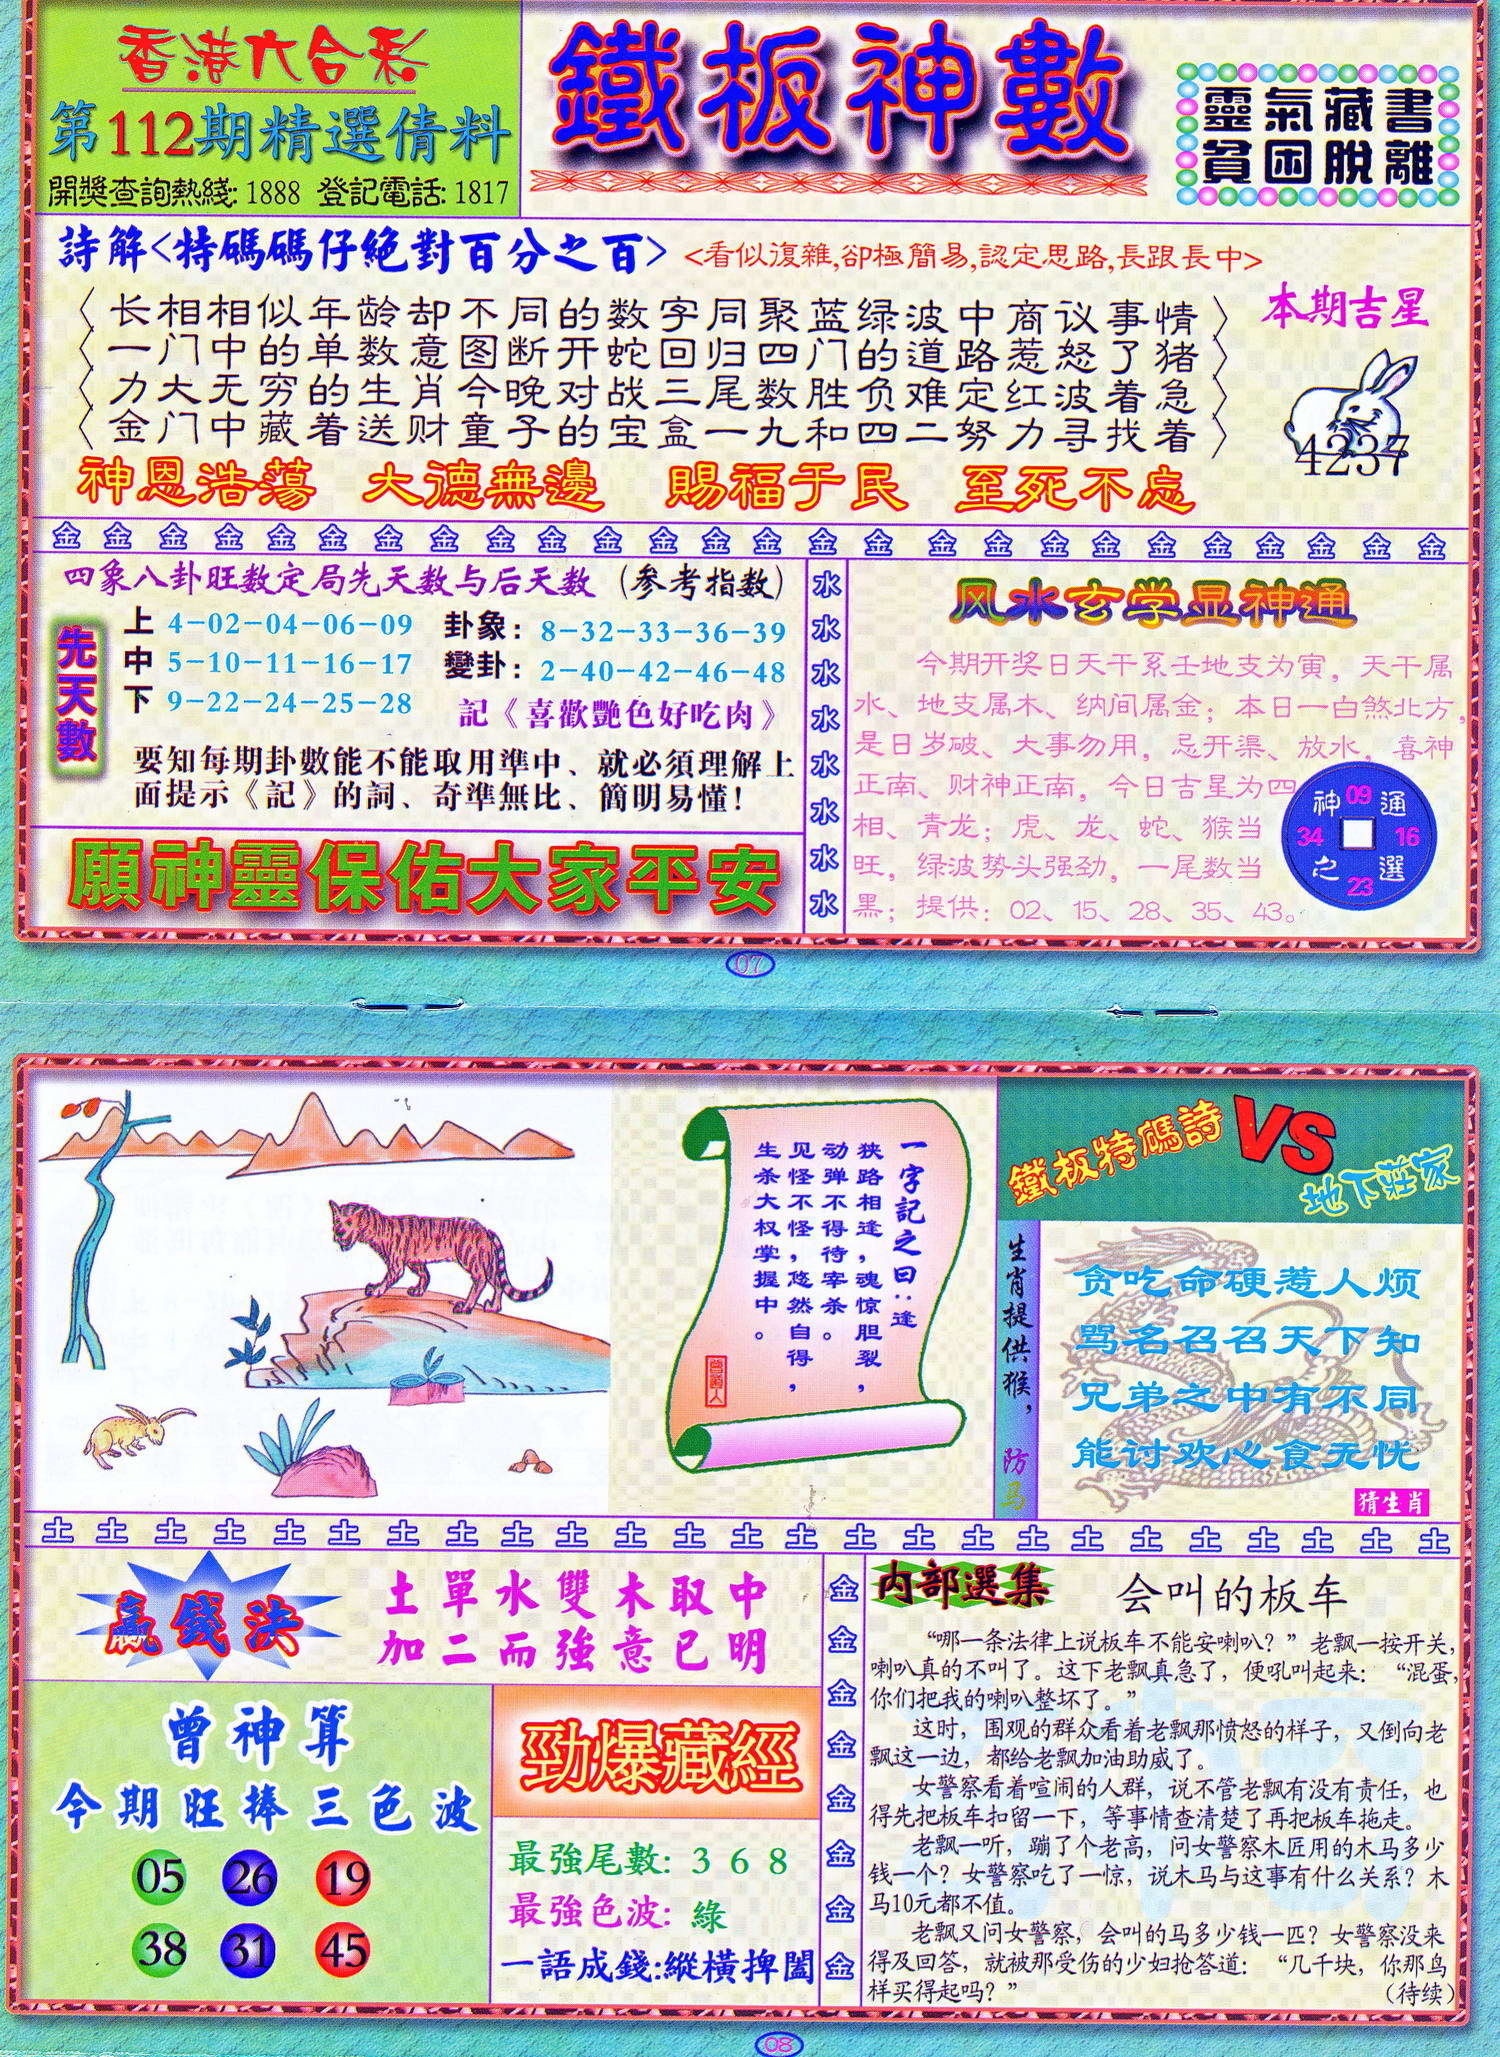 香港六合彩
第112期精選倩料
開獎查詢熱綫: 1888 登記電話: 1817
鐵板神數
靈氣藏書
貧困脫離
詩解<特碼碼仔絕對百分之百> <看似復雜,卻極簡易,認定思路,長跟長中>
长相相似年龄却不同的数字同聚蓝绿波中商议事情
一门中的单数意图断开蛇回归四门的道路惹怒了猪
力大无穷的生肖今晚对战三尾数胜负难定红波着急
金门中藏着送财童子的宝盒一九和四二努力寻找着
本期吉星
4237
神恩浩蕩 大德無邊 賜福于民 至死不忘
金 金 金 金 金 金 金 金 金 金 金 金 金 金 金 金 金 金 金 金 金 金 金 金 金 金
四象八卦旺数定局先天数与后天数 (参考指数)
先天數
上 4-02-04-06-09 卦象: 8-32-33-36-39
中 5-10-11-16-17 變卦: 2-40-42-46-48
下 9-22-24-25-28 記《喜歡艷色好吃肉》
要知每期卦數能不能取用準中、就必須理解上
面提示《記》的詞、奇準無比、簡明易懂!
願神靈保佑大家平安
水
水
水
水
水
水
水
水
风水玄学显神通
今期开奖日天干系壬地支为寅，天干属
水、地支属木、纳间属金；本日一白煞北方，
是日岁破、大事勿用，忌开渠、放水，喜神
正南、财神正南，今日吉星为四
相、青龙；虎、龙、蛇、猴当
旺，绿波势头强劲，一尾数当
黑；提供：02、15、28、35、43。
神 09 通
34 16
之 23 選
07
一字記之曰：逢
狭路相逢，魂惊胆裂，
动弹不得待宰杀。
见怪不怪，悠然自得，
生杀大权掌握中。
曾道人
鐵板特碼詩 VS 地下莊家
生肖提供猴，防马
贪吃命硬惹人烦
骂名召召天下知
兄弟之中有不同
能讨欢心食无忧
猜生肖
土 土 土 土 土 土 土 土 土 土 土 土 土 土 土 土 土 土 土 土 土 土 土 土 土
贏錢決
土單水雙木取中
加二而強意已明
曾神算
今期旺捧三色波
05 26 19
38 31 45
勁爆藏經
最強尾數: 3 6 8
最強色波: 綠
一語成錢:縱横捭闔
金
金
金
金
金
金
金
金
内部選集 会叫的板车
“哪一条法律上说板车不能安喇叭？”老飘一按开关，
喇叭真的不叫了。这下老飘真急了，便吼叫起来：“混蛋，
你们把我的喇叭整坏了。”
这时，围观的群众看着老飘那愤怒的样子，又倒向老
飘这一边，都给老飘加油助威了。
女警察看着喧闹的人群，说不管老飘有没有责任，也
得先把板车扣留一下，等事情查清楚了再把板车拖走。
老飘一听，蹦了个老高，问女警察木匠用的木马多少
钱一个？女警察吃了一惊，说木马与这事有什么关系？木
马10元都不值。
老飘又问女警察，会叫的马多少钱一匹？女警察没来
得及回答，就被那受伤的少妇抢答道：“几千块，你那鸟
样买得起吗？” （待续）
08